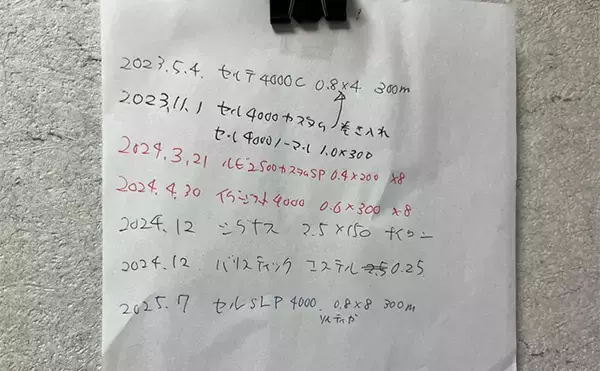 2023.5.4. セルテ4000C 0.8×4 300m
2023.11.1 セル4000カスタム 巻き入れ
セル4000ノーマル 1.0×300
2024.3.21 ルビ2500カスタムSP 0.4×200 ×8
2024.4.30 イグジスト4000 0.6×300 ×8
2024.12 シラナス 2.5×150 ナイロン
2024.12 バリスティック エステル 0.25
2025.7 セルSLP 4000. 0.8×8 300m
ソルティガ